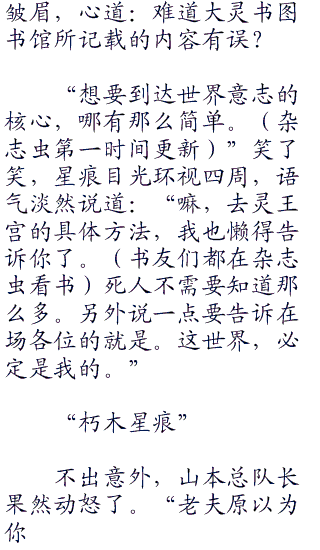 皱眉，心道：难道大灵书图
书馆所记载的内容有误？
“想要到达世界意志的
核心，哪有那么简单。（杂
志虫第一时间更新）”笑了
笑，星痕目光环视四周，语
气淡然说道：“嘛，去灵王
宫的具体方法，我也懒得告
诉你了。（书友们都在杂志
虫看书）死人不需要知道那
么多。另外说一点要告诉在
场各位的就是。这世界，必
定是我的。”
“朽木星痕”
不出意外，山本总队长
果然动怒了。“老夫原以为
你